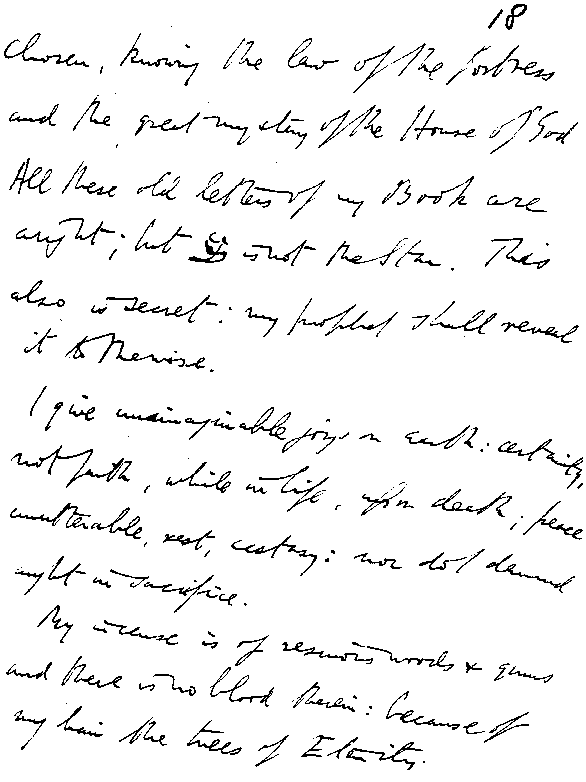 18
chosen, knowing the law of the fortress
and the great mystery of the House of God
All these old letters of my Book are
aright; but צ is not the Star. This
also is secret: my prophet shall reveal
it to the wise.
I give unimaginable joys on earth: certainty,
not faith, while in life, upon death; peace
unutterable, rest, ecstasy: nor do I demand
aught in sacrifice.
My incense is of resinous woods & gums
and there is no blood therein: because of
my hair the trees of Eternity.